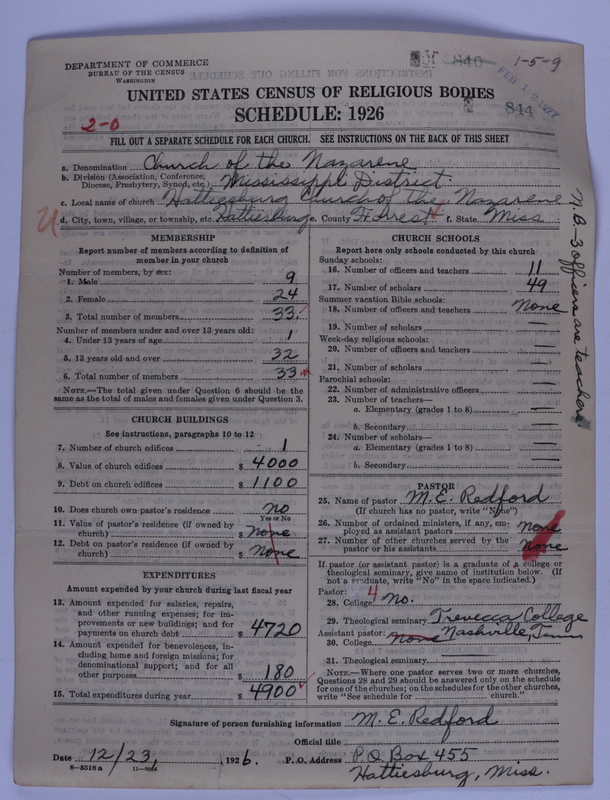 DEPARTMENT OF COMMERCE
BUREAU OF THE CENSUS
WASHINGTON
840
1-5-9
FEB 12 1927
844
UNITED STATES CENSUS OF RELIGIOUS BODIES
SCHEDULE: 1926
2-0
FILL OUT A SEPARATE SCHEDULE FOR EACH CHURCH. SEE INSTRUCTIONS ON THE BACK OF THIS SHEET
a. Denomination Church of the Nazarene
b. Division (Association, Conference, Diocese, Presbytery, Synod, etc.) Mississippi District
c. Local name of church Hattiesburg Church of the Nazarene
d. City, town, village, or township, etc. Hattiesburg e. County Forrest f. State Miss
N.B. - 3 officers are teachers
MEMBERSHIP
Report number of members according to definition of
member in your church
Number of members, by sex:
1. Male 9
2. Female 24
3. Total number of members 33
Number of members under and over 13 years old:
4. Under 13 years of age 1
5. 13 years old and over 32
6. Total number of members 33
NOTE.—The total given under Question 6 should be the
same as the total of males and females given under Question 3.
CHURCH BUILDINGS
See instructions, paragraphs 10 to 12
7. Number of church edifices 1
8. Value of church edifices $ 4000
9. Debt on church edifices $ 1100
10. Does church own pastor's residence no
Yes or No
11. Value of pastor's residence (if owned by
church) $ none
12. Debt on pastor's residence (if owned by
church) $ none
EXPENDITURES
Amount expended by your church during last fiscal year
13. Amount expended for salaries, repairs,
and other running expenses; for im-
provements or new buildings; and for
payments on church debt $ 4720
14. Amount expended for benevolences, in-
cluding home and foreign missions; for
denominational support; and for all
other purposes $ 180
15. Total expenditures during year $ 4900
CHURCH SCHOOLS
Report here only schools conducted by this church
Sunday schools:
16. Number of officers and teachers 11
17. Number of scholars 49
Summer vacation Bible schools:
18. Number of officers and teachers none
19. Number of scholars —
Week-day religious schools:
20. Number of officers and teachers —
21. Number of scholars —
Parochial schools:
22. Number of administrative officers —
23. Number of teachers—
a. Elementary (grades 1 to 8) —
b. Secondary —
24. Number of scholars—
a. Elementary (grades 1 to 8) —
b. Secondary —
PASTOR
25. Name of pastor M. E. Redford
(If church has no pastor, write "None")
26. Number of ordained ministers, if any, em-
ployed as assistant pastors none
27. Number of other churches served by the
pastor or his assistants none
If pastor (or assistant pastor) is a graduate of a college or
theological seminary, give name of institution below. (If
not a graduate, write "No" in the space indicated.)
Pastor: 4
28. College No.
29. Theological seminary Trevecca College
Assistant pastor: Nashville, Tenn
30. College none
31. Theological seminary
NOTE.—Where one pastor serves two or more churches,
Questions 28 and 29 should be answered only on the schedule
for one of the churches; on the schedules for the other churches,
write "See schedule for church."
Signature of person furnishing information M. E. Redford
Official title
Date 12/23, 1926. P. O. Address P.O. Box 455
8—5518a 11—9054 Hattiesburg, Miss.